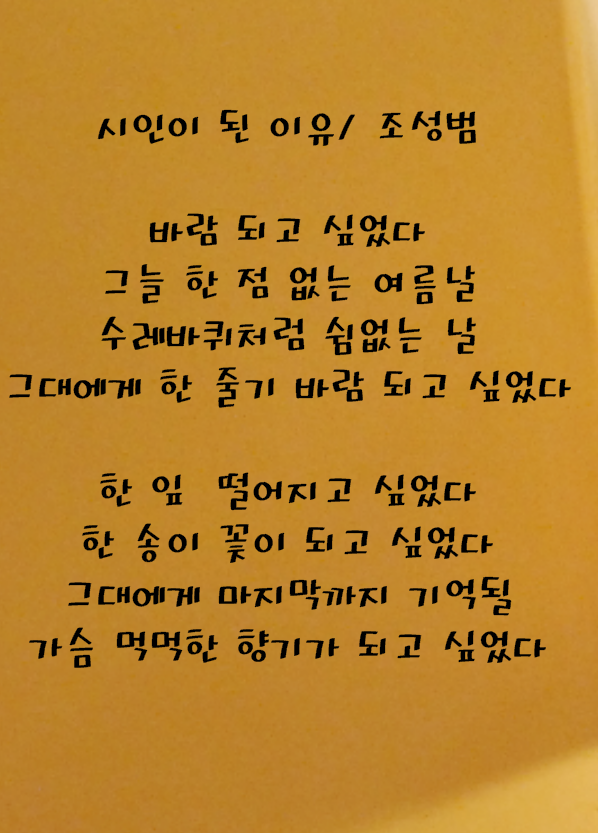 시인이 된 이유/ 조성범
바람 되고 싶었다
그늘 한 점 없는 여름날
수레바퀴처럼 쉼없는 날
그대에게 한 줄기 바람 되고 싶었다
한 잎 떨어지고 싶었다
한 송이 꽃이 되고 싶었다
그대에게 마지막까지 기억될
가슴 먹먹한 향기가 되고 싶었다